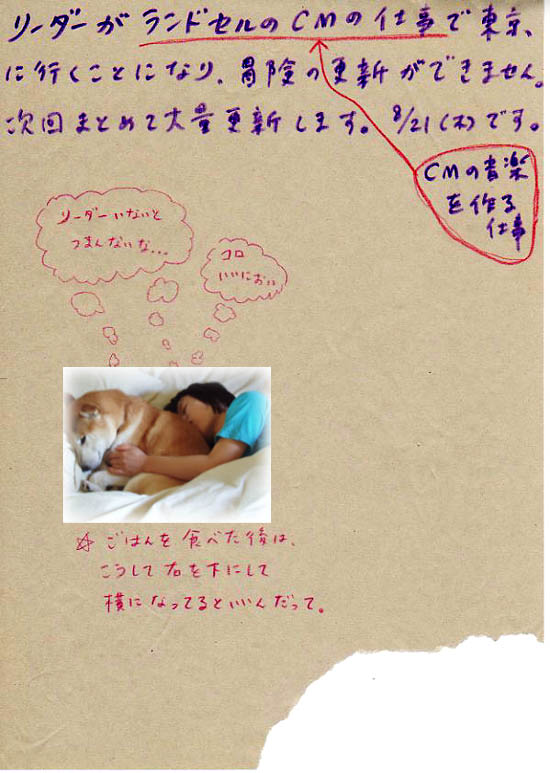 リーダーがランドセルのCMの仕事で東京、
に行くことになり、冒険の更新ができません。
次回まとめて大量更新します。8/21(木)です。
CMの音楽
を作る
仕事
リーダーいないと
つまんないな...
コロ
いいにおい
☆ごはんを食べた後は、
こうして右を下にして
横になってるといいんだって。